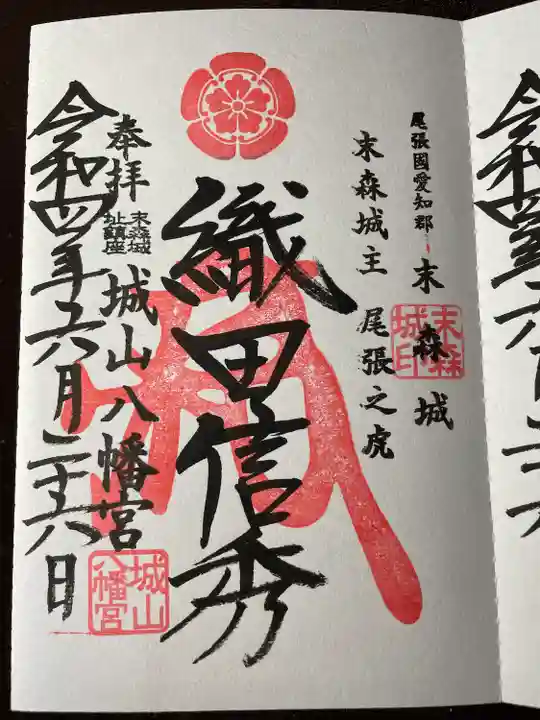 尾張國愛知郡 末森城
末森城印
末森城主 尾張之虎
織田信秀
奉拝
末森城
址鎮座
城山八幡宮
城山
八幡宮
令和四年六月二十六日